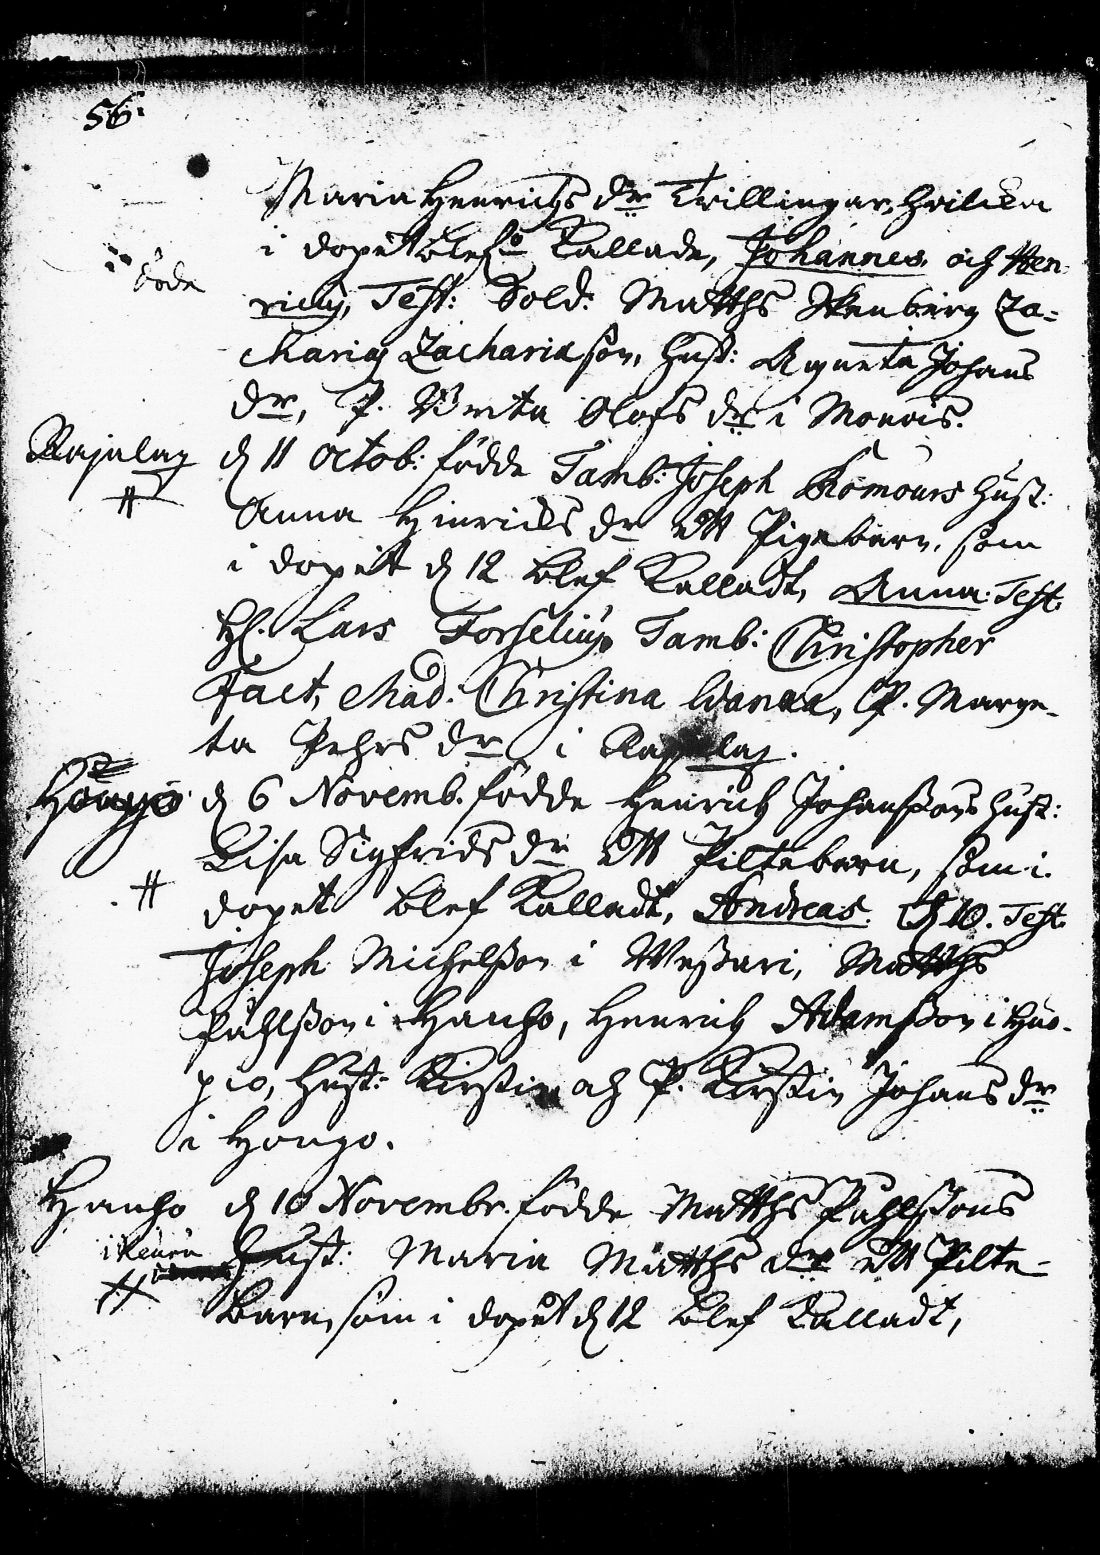 56.
Maria Henrichs dr Tvillingar, hvilka
i dopet blefo Kallade, Johannes och Hen-
döde
ricus, Test: Sold: Matths Stenberg Za-
charias Zachariason, hust: Agneta Johans
dr, P. Brita Olofs dr i Monois.
Rajalax d 11 Octob: födde Tamb: Joseph Komours hust:
Anna Hinrichs dr ett Pigebarn, som
i dopet d 12 blef Kalladt, Anna. Test:
Hl. Lars Forselius, Tamb: Christopher
Fact, Mad: Christina Wanaa, P. Marge-
ta Pehrs dr i Rajalax.
Hongo d 6 Novemb. födde Henrich Johanssons hust:
Lisa Sigfrids dr ett Piltebarn, som i
dopet blef Kalladt, Andreas. d 10. Test
Joseph Michelsson i Wessari, Matths
Påhlsson i Hanho, Henrich Adamsson i Huo-
pio, hust: Kirstin och P. Kirstin Johans dr
i Hongo.
Hanho d 10 Novembr. födde Matths Påhlssons
hust: Maria Matths dr ett Pilte-
barn, som i dopet d 12 blef Kalladt,